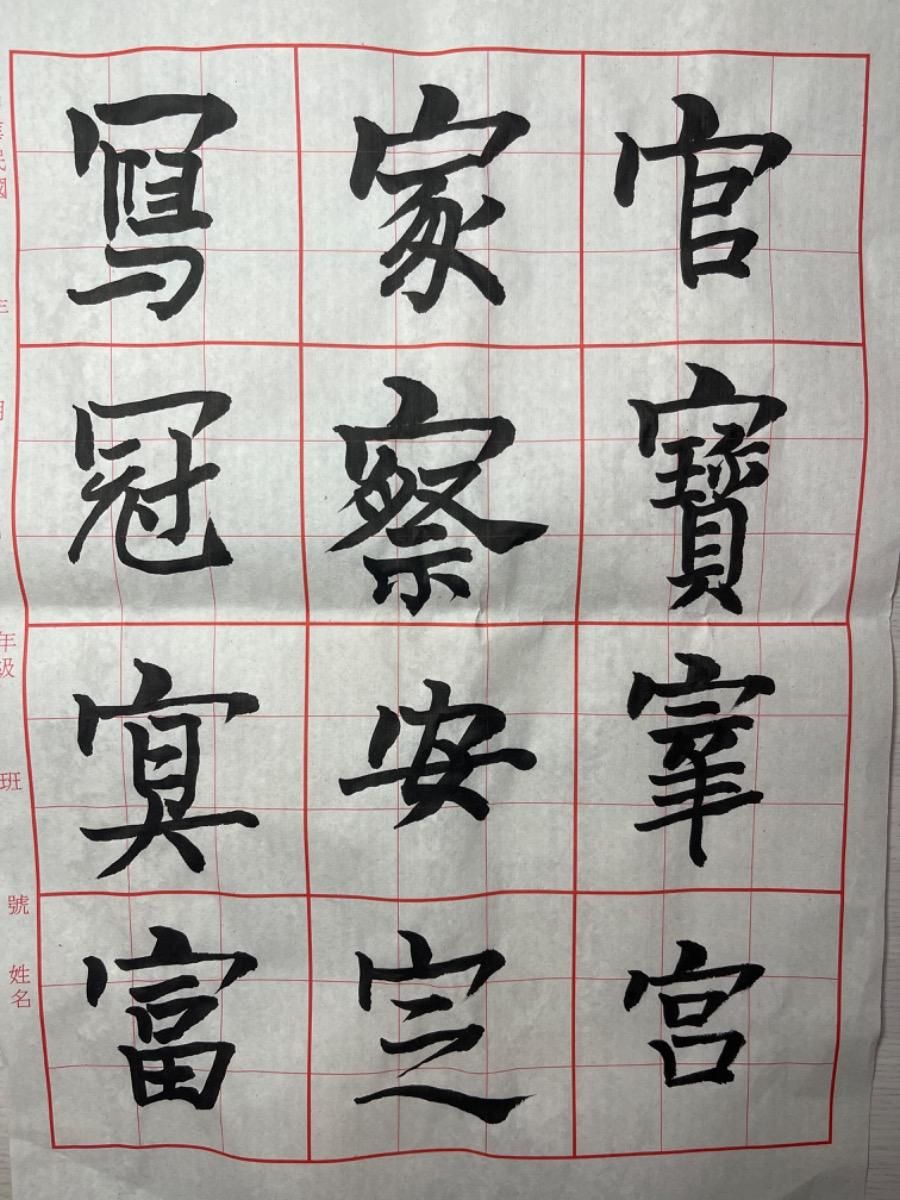 官寶宰宮
家察安定
寫冠冥富
華民國 年 月 年級 班 號 姓名